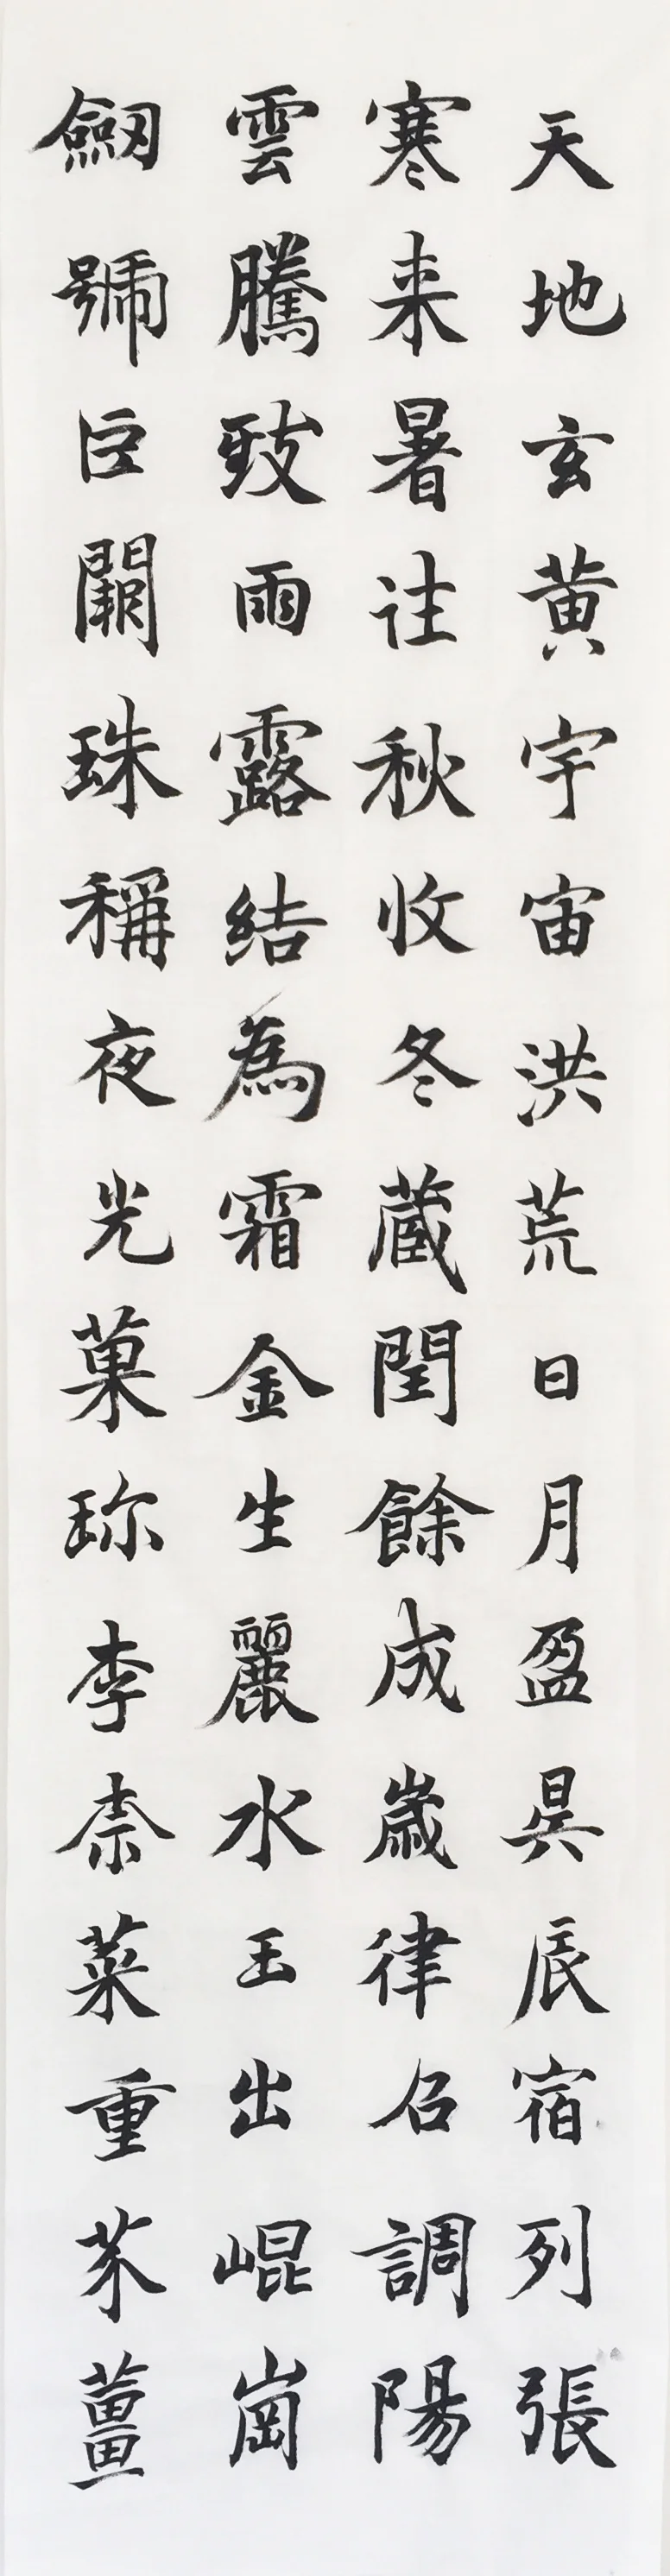 天地玄黄宇宙洪荒日月盈昃辰宿列張
寒来暑往秋收冬蔵閏餘成歳律召調陽
雲騰致雨露結為霜金生麗水玉出崐崗
劔號巨闕珠稱夜光菓珎李柰菜重芥薑